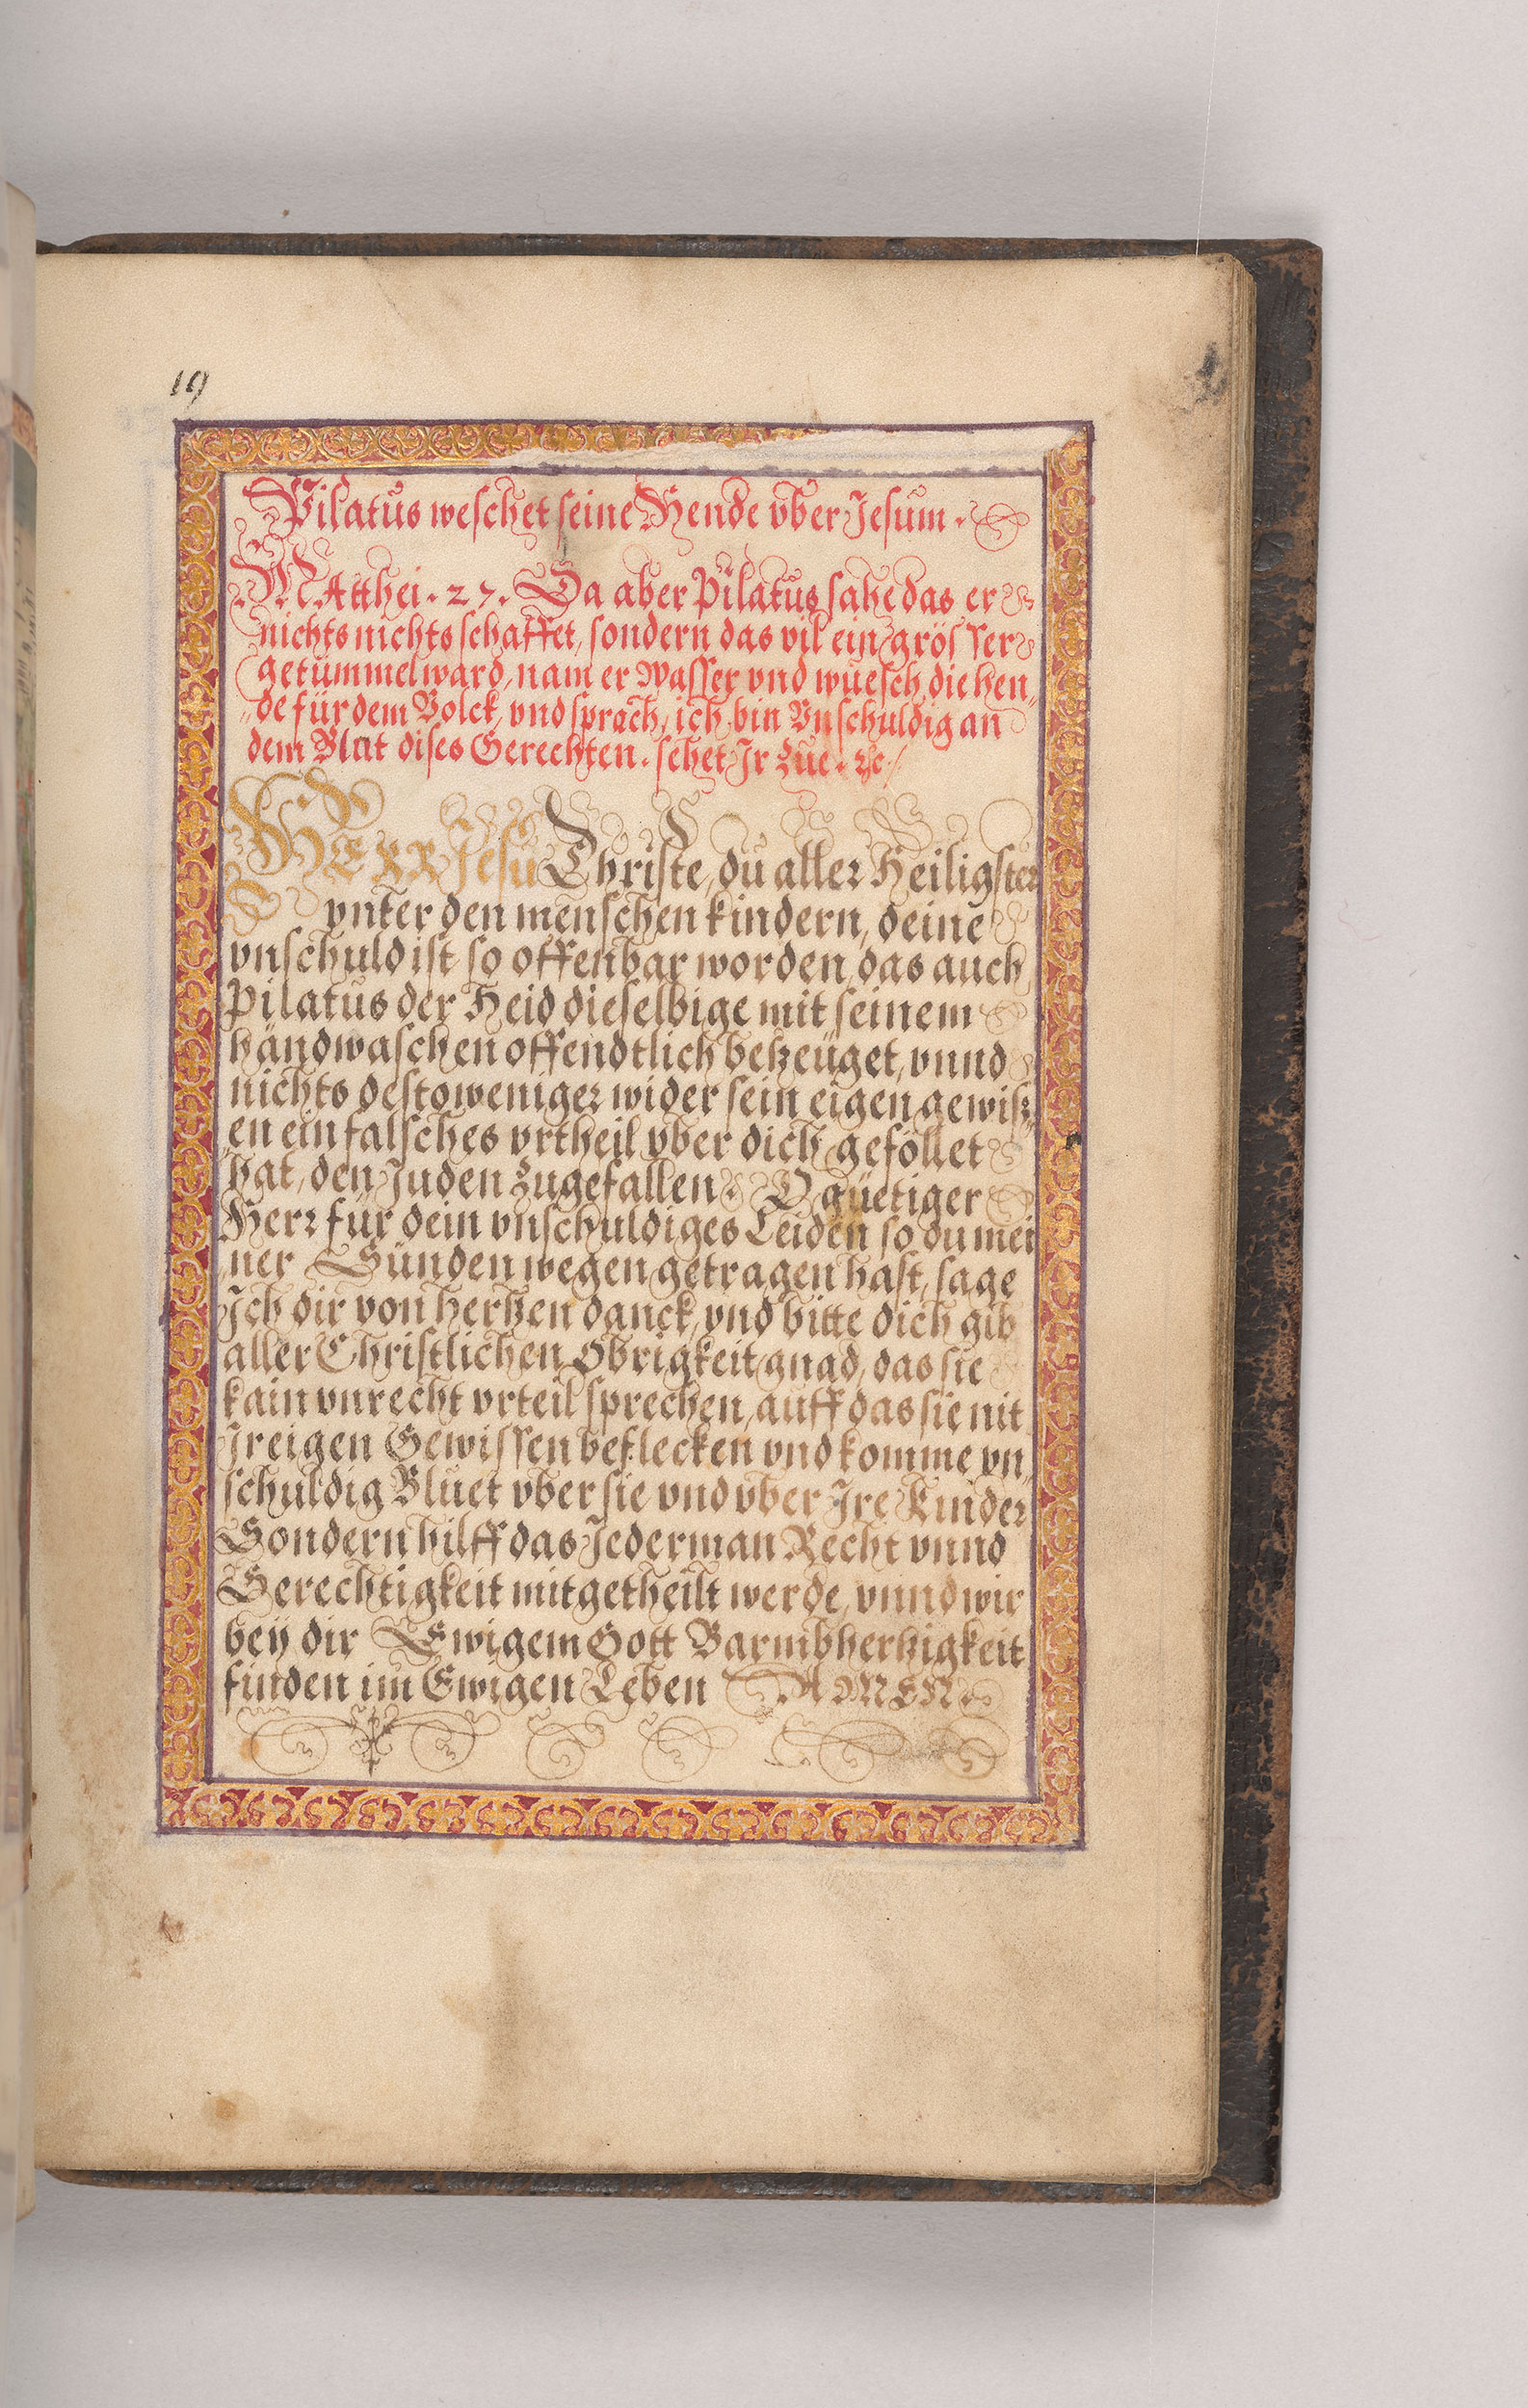 19
Pilatus weschet seine Hende vber Jesum.
MAtthei. 27. Da aber Pilatus sahe das er
nichts nichts schaffet, sondern das vil ein grösser
getümmel ward, nam er wasser vnd wuesch die hen„
„de für dem Volck, vnd sprach, ich bin Vnschuldig an
dem Blut dises Gerechten. sehet Jr Zue. ꝛc.
HERR Jesu Christe, du aller Heiligster
vnter den menschen kindern, deine
vnschuld ist so offenbar worden, das auch
Pilatus der Heid dieselbige mit seinem
händwaschen offendtlich betzeüget, vnnd
nichts destoweniger wider sein eigen gewiß„
„en ein falsches vrtheil vber dich geföllet
hat, den Juden Zugefallen. O güetiger
Herr für dein vnschuldiges Leiden so du mei
ner Sünden wegen getragen hast, sage
Ich dir von hertzen danck, vnd bitte dich gib
aller Christlichen Obrigkeit gnad, das sie
kain vnrecht vrteil sprechen, auff das sie nit
Jr eigen Gewissen beflecken vnd komme vn„
schuldig Bluet vber sie vnd vber Jre Kinder
Sondern hilff das Jederman Recht vnnd
Gerechtigkeit mitgetheilt werde, vnnd wir
bey dir Ewigem Gott Barmbhertzigkeit
finden im Ewigen Leben AMEN.